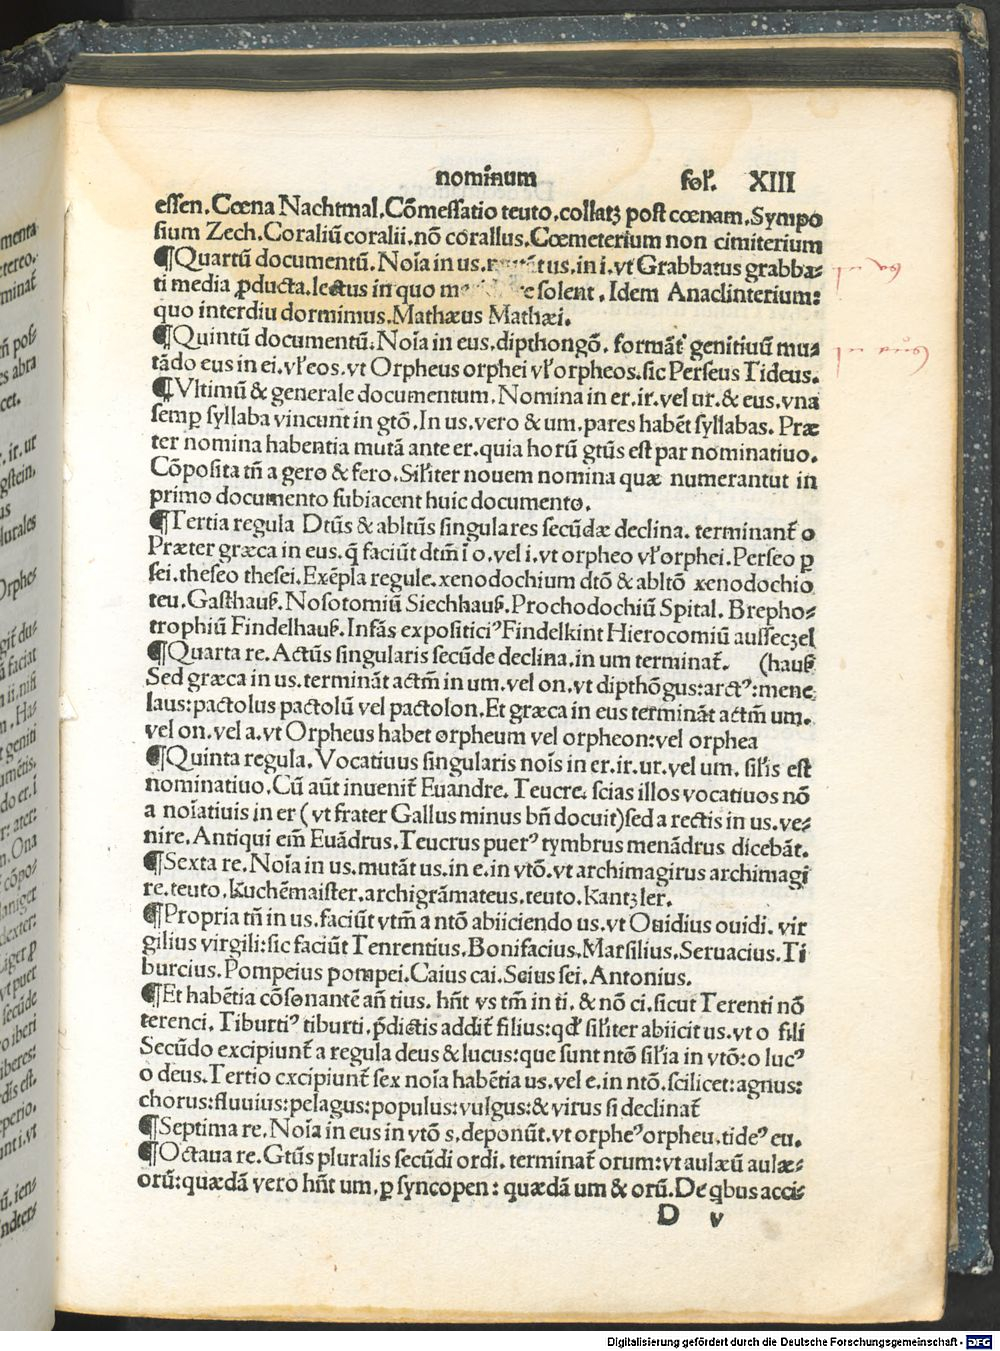 nominum fol'. XIII
essen. Cœna Nachtmal. Cōmessatio teuto. collatꝫ post cœnam. Sympo
sium Zech. Coraliū coralii. nō corallus. Cœmeterium non cimiterium
¶Quartū documentū. Noīa in us. tus. in i. vt Grabbatus grabba⸗
ti media ꝓducta. lectus in quo solent. Idem Anaclinterium:
quo interdiu dormimus. Mathæus Mathæi.
¶Quintū documentū. Noīa in eus. dipthongō. formāt᷑ genitiuū mu⸗
tādo eus in ei. vl' eos. vt Orpheus orphei vl' orpheos. sic Perseus Tideus.
¶Vltimū & generale documentum. Nomina in er. ir. vel ur. & eus. vna
semꝑ syllaba vincunt in gtō. In us. vero & um. pares habēt syllabas. Præ
ter nomina habentia mutā ante er. quia horū gtūs est par nominatiuo.
Cōposita tn̄ a gero & fero. Sil'iter nouem nomina quæ numerantut in
primo documento subiacent huic documento.
¶Tertia regula Dtūs & abltūs singulares secūdæ declina. terminant᷑ o
Præter græca in eus. q̄ faciūt dtm̄ ī o. vel i. vt orpheo vl' orphei. Perseo ꝑ
sei. theseo thesei. Exēpla regule. xenodochium dtō & abltō xenodochio
teu. Gasthauß. Nosotomiū Siechhauß. Prochodochiū Spital. Brepho⸗
trophiū Findelhauß. Infās expositiciꝰ Findelkint Hierocomiū ausseczel
¶Quarta re. Actūs singularis secūde declina. in um terminat᷑. (hauß
Sed græca in us. termināt actm̄ in um. vel on. vt dipthōgus: arctꝰ: mene
laus: pactolus pactolū vel pactolon. Et græca in eus termināt actm̄ um.
vel on. vel a. vt Orpheus habet orpheum vel orpheon: vel orphea
¶Quinta regula. Vocatiuus singularis noīs in er. ir. ur. vel um. sil'is est
nominatiuo. Cū aūt inuenit᷑ Euandre. Teucre. scias illos vocatiuos nō
a noīatiuis in er (vt frater Gallus minus bn̄ docuit) sed a rectis in us. ve⸗
nire. Antiqui em̄ Euādrus. Teucrus puerꝰ tymbrus menādrus dicebāt.
¶Sexta re. Noīa in us. mutāt us. in e. in vtō. vt archimagirus archimagi
re. teuto. Kuchēmaister. archigrāmateus. teuto. Kantzler.
¶Propria tn̄ in us. faciūt vtm̄ a ntō abiiciendo us. vt Ouidius ouidi. vir
gilius virgili: sic faciūt Tenrentius. Bonifacius. Marsilius. Seruacius. Ti
burcius. Pompeius pompei. Caius cai. Seius sei. Antonius.
¶Et habētia cōsonantē an̄ tius. hn̄t vs tm̄ in ti. & nō ci. sicut Terenti nō
terenci. Tiburtiꝰ tiburti. p̄dictis addit᷑ filius: qd' sil'iter abiicit us. vt o fili
Secūdo excipiunt᷑ a regula deus & lucus: que sunt ntō sil'ia in vtō: o lucꝰ
o deus. Tertio excipiunt᷑ sex noīa habētia us. vel e. in ntō. scilicet: agnus:
chorus: fluuius: pelagus: populus: vulgus: & virus si declinat᷑
¶Septima re. Noīa in eus in vtō s. deponūt. vt orpheꝰ orpheu. tideꝰ eu.
¶Octaua re. Gtūs pluralis secūdi ordi. terminat᷑ orum: vt aulæū aulæ⸗
orū: quædā vero hn̄t um. ꝑ syncopen: quædā um & orū. De qbus acci⸗
D v
Digitalisierung gefördert durch die Deutsche Forschungsgemeinschaft - DFG